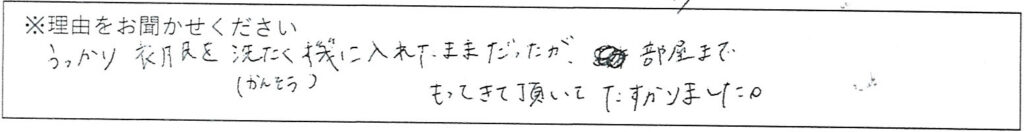 ※理由をお聞かせください
うっかり 衣服を 洗たく機に入れたままだったが、部屋まで
(かんそう)
もってきて頂いて たすかりました。